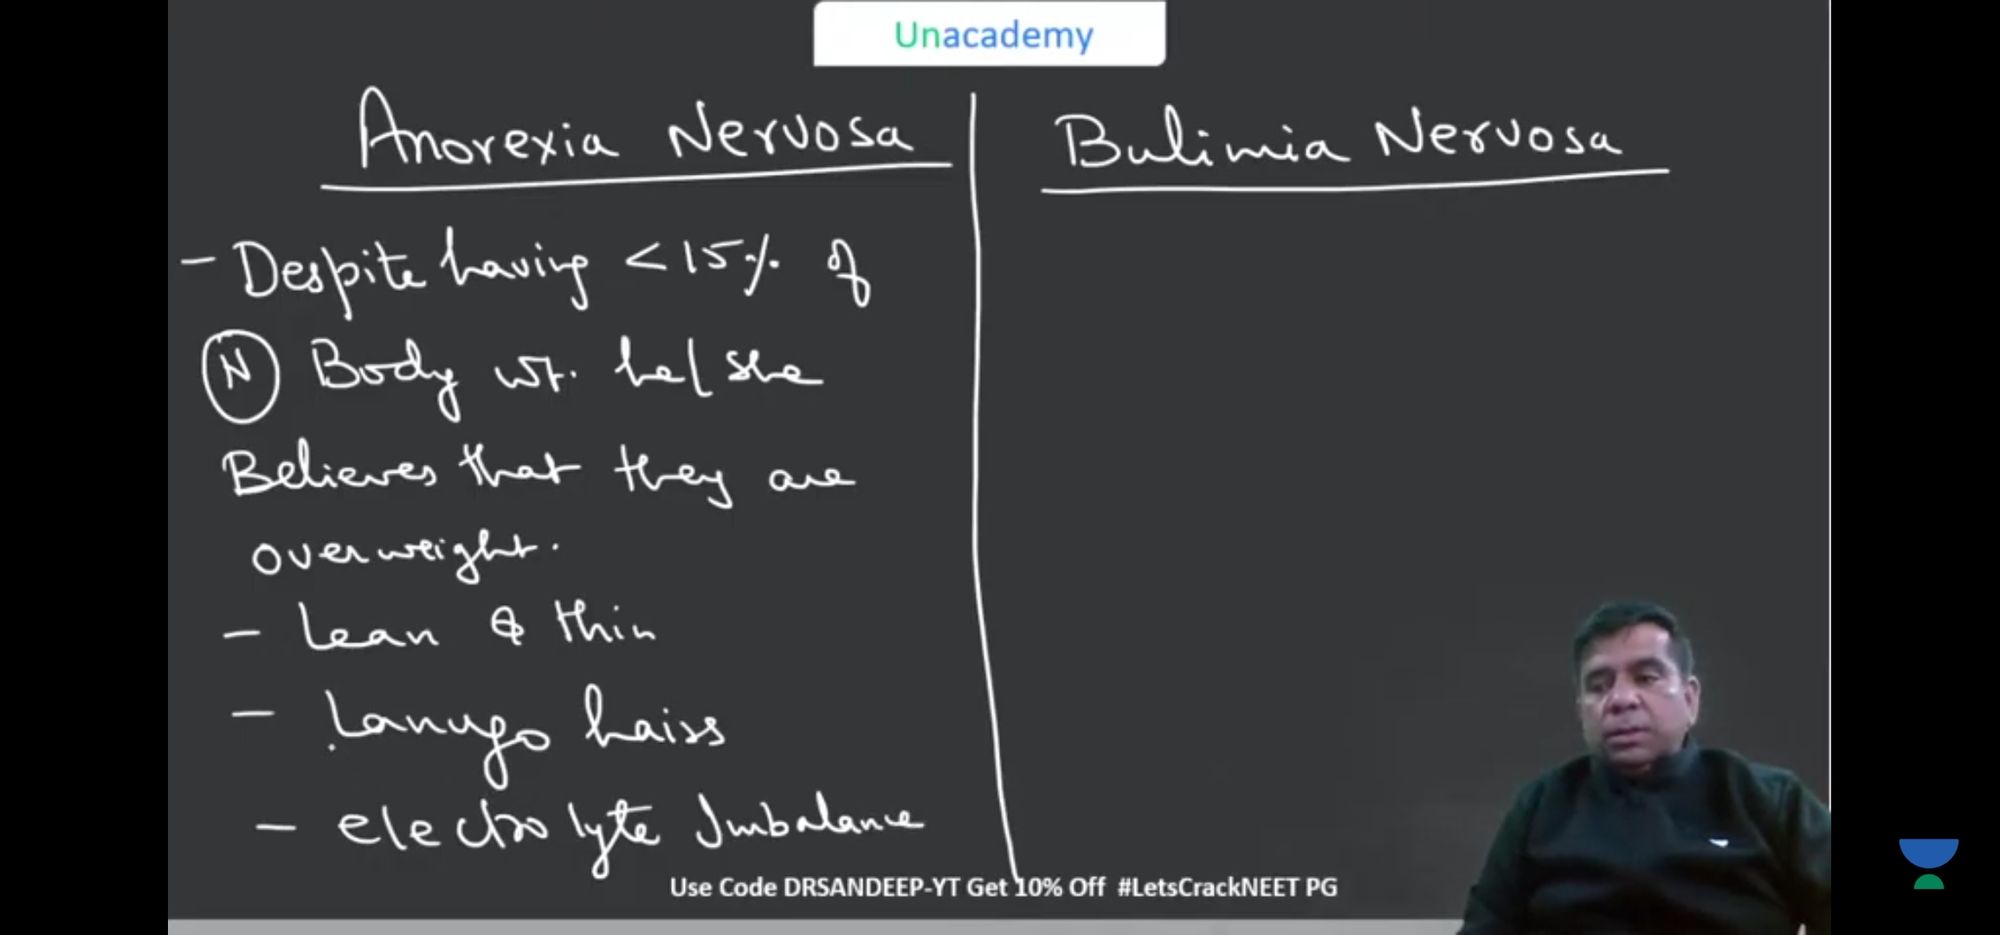 Unacademy
Anorexia Nervosa
Bulimia Nervosa
- Despite having <15% of
(N) Body wt. he/she
Believes that they are
overweight.
- Lean & thin
- Lanugo hairs
- electrolyte Imbalance
Use Code DRSANDEEP-YT Get 10% Off #LetsCrackNEET PG